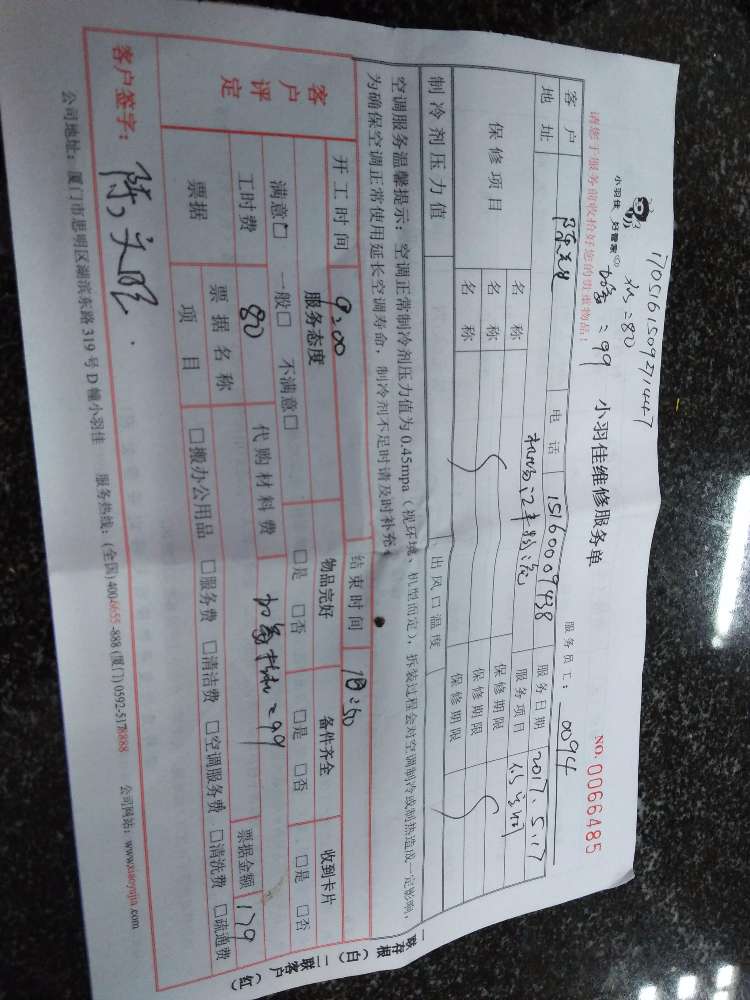 170516150927447
机=80
加氟=99
小羽佳 好管家
小羽佳维修服务单
NO. 0066485
请您于服务前收拾好您的贵重物品!
服务员工: 0094
客户 电话 15160009438 服务日期 2017.5.17
地址 服务项目
保修项目 名称 保修期限
名称 保修期限
名称 保修期限
制冷剂压力值 出风口温度
空调服务温馨提示:空调正常制冷剂压力值为 0.45mpa(视环境、机型而定),拆装过程会对空调制冷或制热造成一定影响,
为确保空调正常使用延长空调寿命,制冷剂不足时请及时补充。
开工时间 9:00 结束时间
客户评定 服务态度 物品完好 备件齐全 收到卡片
满意□ 一般□ 不满意□ □是 □否 □是 □否 □是 □否
工时费 80 代购材料费 =99 票据金额 179
票据 票据名称
项目 □搬办公用品 □服务费 □清洁费 □空调服务费 □清洗费 □疏通费
客户签字:
公司地址:厦门市思明区湖滨东路 319 号 D 幢小羽佳 服务热线:(全国)4006655-888 (厦门) 0592-5178888 公司网站:www.xiaoyujia.com
一联存根(白) 二联客户(红)